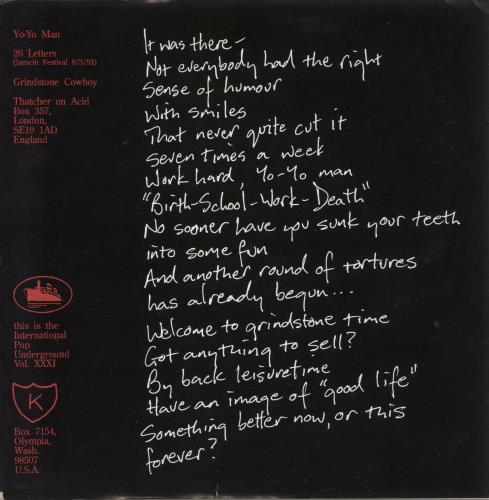 Yo-Yo Man
26 Letters
(Jarocin Festival 8/3/91)
Grindstone Cowboy
Thatcher on Acid
Box 357,
London,
SE19 1AD
England
this is the
International
Pop
Underground
Vol. XXXI
K
Box 7154,
Olympia,
Wash.
98507
U.S.A.
It was there-
Not everybody had the right
Sense of humour
With smiles
That never quite cut it
Seven times a week
Work hard, Yo-Yo man
"Birth-School-Work-Death"
No sooner have you sunk your teeth
into some fun
And another round of tortures
has already begun...
Welcome to grindstone time
Got anything to sell?
By back leisuretime
Have an image of "good life"
Something better now, or this
forever?